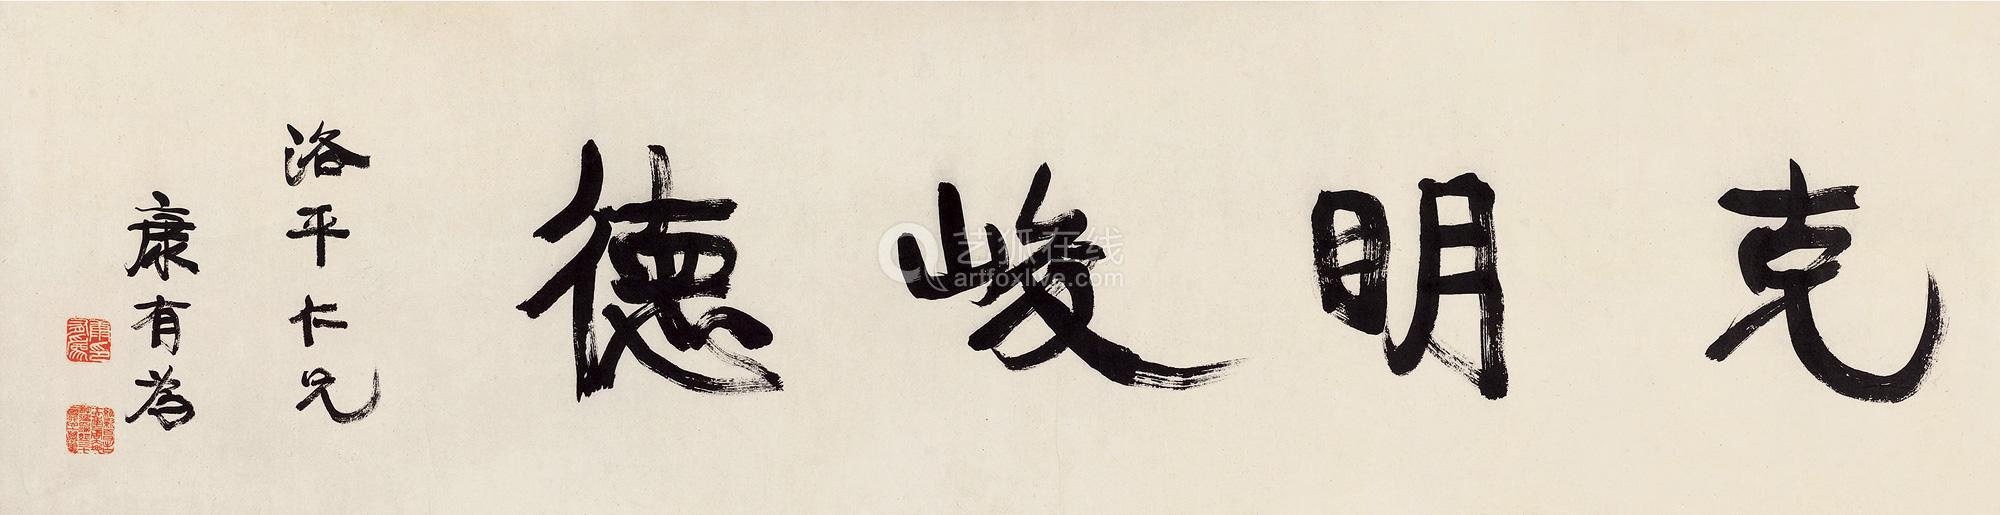 克明峻德
洛平仁兄
康有為
艺狐在线
artfoxlive.com